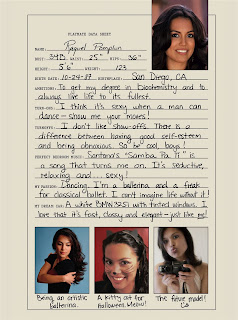 PLAYMATE DATA SHEET
NAME: Raquel Pomplun
BUST: 34B WAIST: 25" HIPS: 36"
HEIGHT: 5'6" WEIGHT: 123
BIRTH DATE: 10-24-87 BIRTHPLACE: San Diego, CA
AMBITIONS: To get my degree in Biochemistry and to
always live life to its fullest.
TURN-ONS: I think it's sexy when a man can
dance—show me your moves!
TURNOFFS: I don't like show-offs. There is a
difference between having good self-esteem
and being obnoxious. So be cool, boys!
PERFECT BEDROOM MUSIC: Santana's "Samba Pa Ti" is
a song that turns me on. It's seductive,
relaxing and... sexy!
MY PASSION: Dancing. I'm a ballerina and a freak
for classical ballet. I can't imagine life without it!
MY DREAM CAR: A white BMW 325i with tinted windows. I
love that it's fast, classy and elegant—just like me!
Being an artistic
ballerina.
A kitty cat for
Halloween. Meow!
The future model!